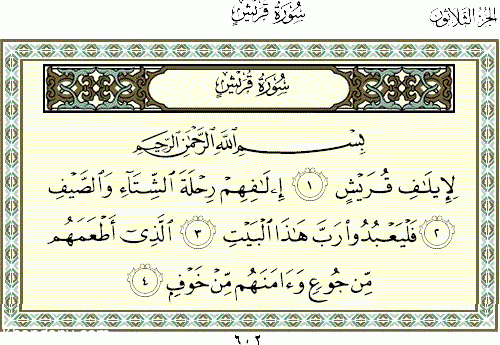 الجزء الثلاثون
سورة قريش
سورة قريش
بسم الله الرحمن الرحيم
لِإِيلَٰفِ قُرَيْشٍ ١ إِۦلَٰفِهِمْ رِحْلَةَ ٱلشِّتَآءِ وَٱلصَّيْفِ
٢ فَلْيَعْبُدُوا۟ رَبَّ هَٰذَا ٱلْبَيْتِ ٣ ٱلَّذِىٓ أَطْعَمَهُم
مِّن جُوعٍ وَءَامَنَهُم مِّنْ خَوْفٍ ٤
٦٠٢